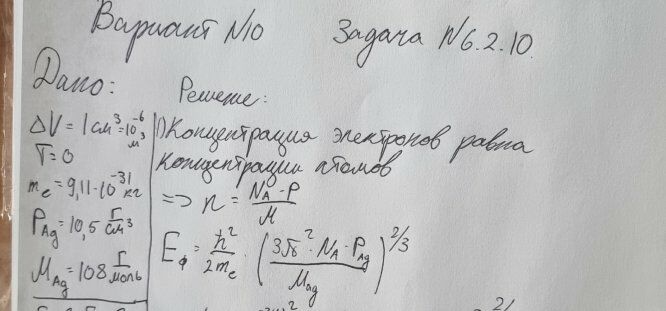 Вариант №10 Задача №6.2.10.
Дано:
ΔV = 1 см³ = 10⁻⁶ м³
T = 0
mₑ = 9,11·10⁻³¹ кг
ρ_Ag = 10,5 г/см³
M_Ag = 108 г/моль
Решение:
1) Концентрация электронов равна
концентрации атомов
=> n = N_A·ρ/M
E_ф = ħ²/2mₑ · (3π²·N_A·ρ_Ag/M_Ag)^2/3